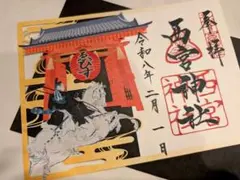 奉拝
西宮神社
令和八年二月一日
ゑびす